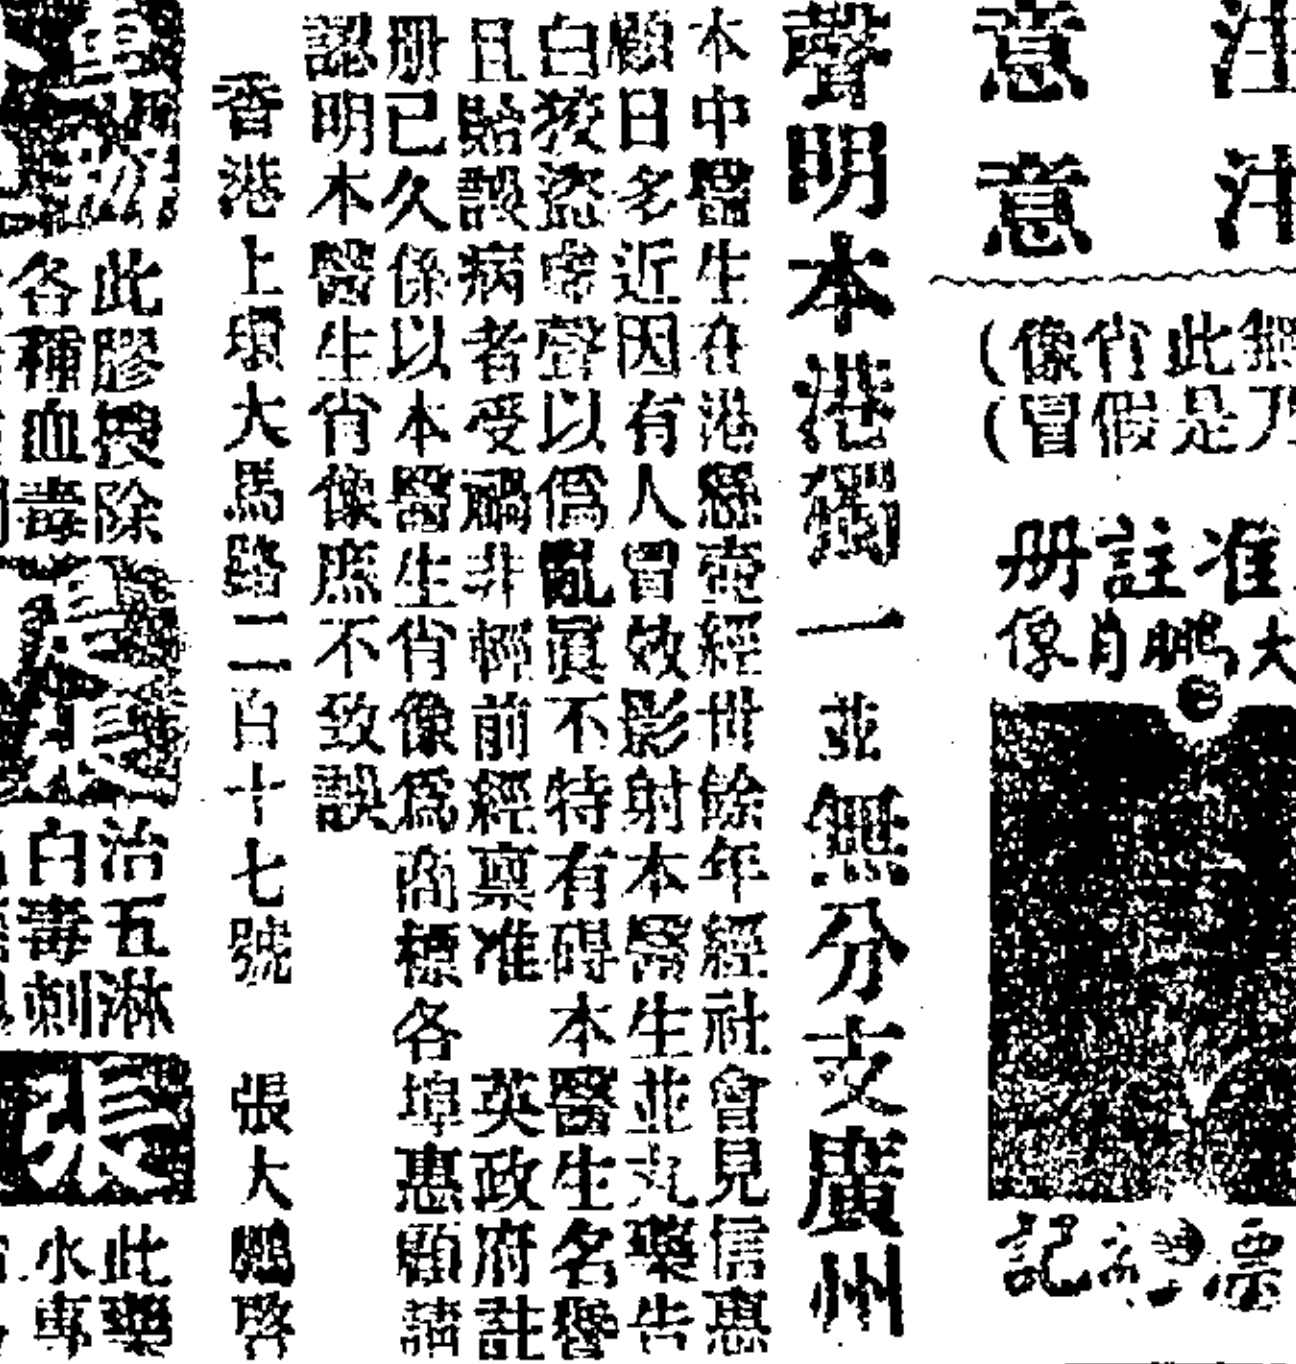 注意
注意
無此肖像
乃是假冒
准註册
大鵬肖像
標 記
聲明本港獨一並無分支廣州
本中醫生在港懸壺經世餘年經社會見信惠
顧日多近因有人冒效影射本醫生並丸藥告
白狡盜虛聲以僞亂眞不特有碍本醫生名譽
且貽誤病者受禍非輕前經禀准 英政府註
册已久係以本醫生肖像爲商標各埠惠顧請
認明本醫生肖像庶不致誤
香港上環大馬路二百十七號 張大鵬啓
此膠搜除
各種血毒
治五淋
白毒刺
張
此藥
水專